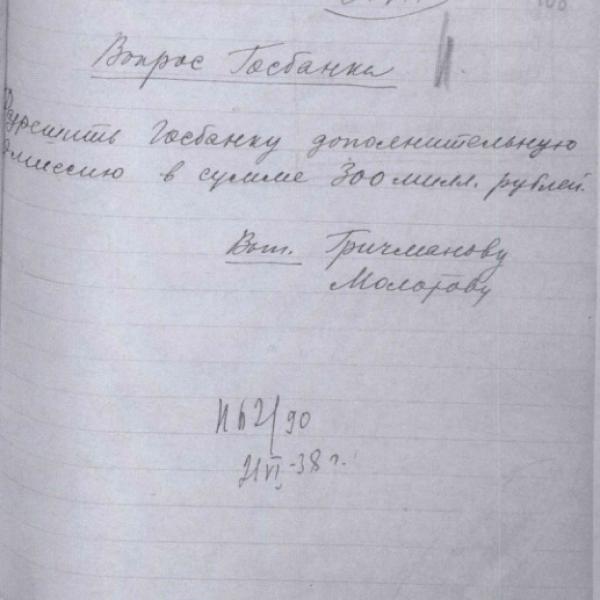 Вопрос Госбанка
Разрешить Госбанку дополнительную
эмиссию в сумме 300 милл. рублей.
Вып. Гричманову
Молотову
П 62/90
21/VI-38 г.